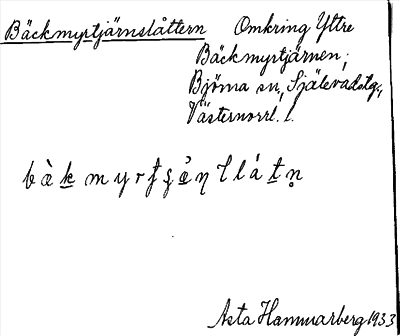 Bäckmyrtjärnslåttern Omkring Yttre
Bäckmyrtjärnen,
Björna sn, Själevadstg,
Västernorrl. l.
Asta Hammarberg 1933